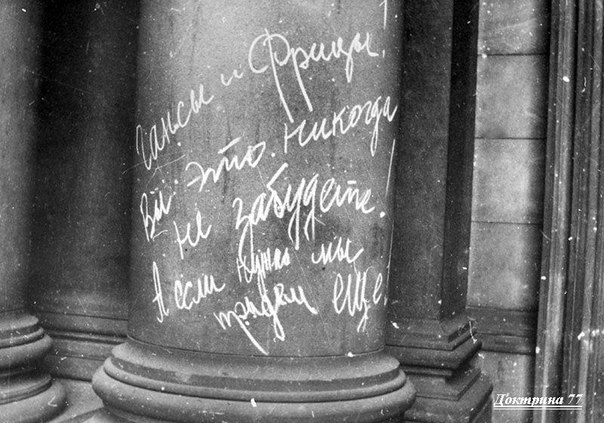 Гансы и Фрицы!
Вы это никогда
не забудете!
А если нужно мы
придем еще!
Доктрина 77